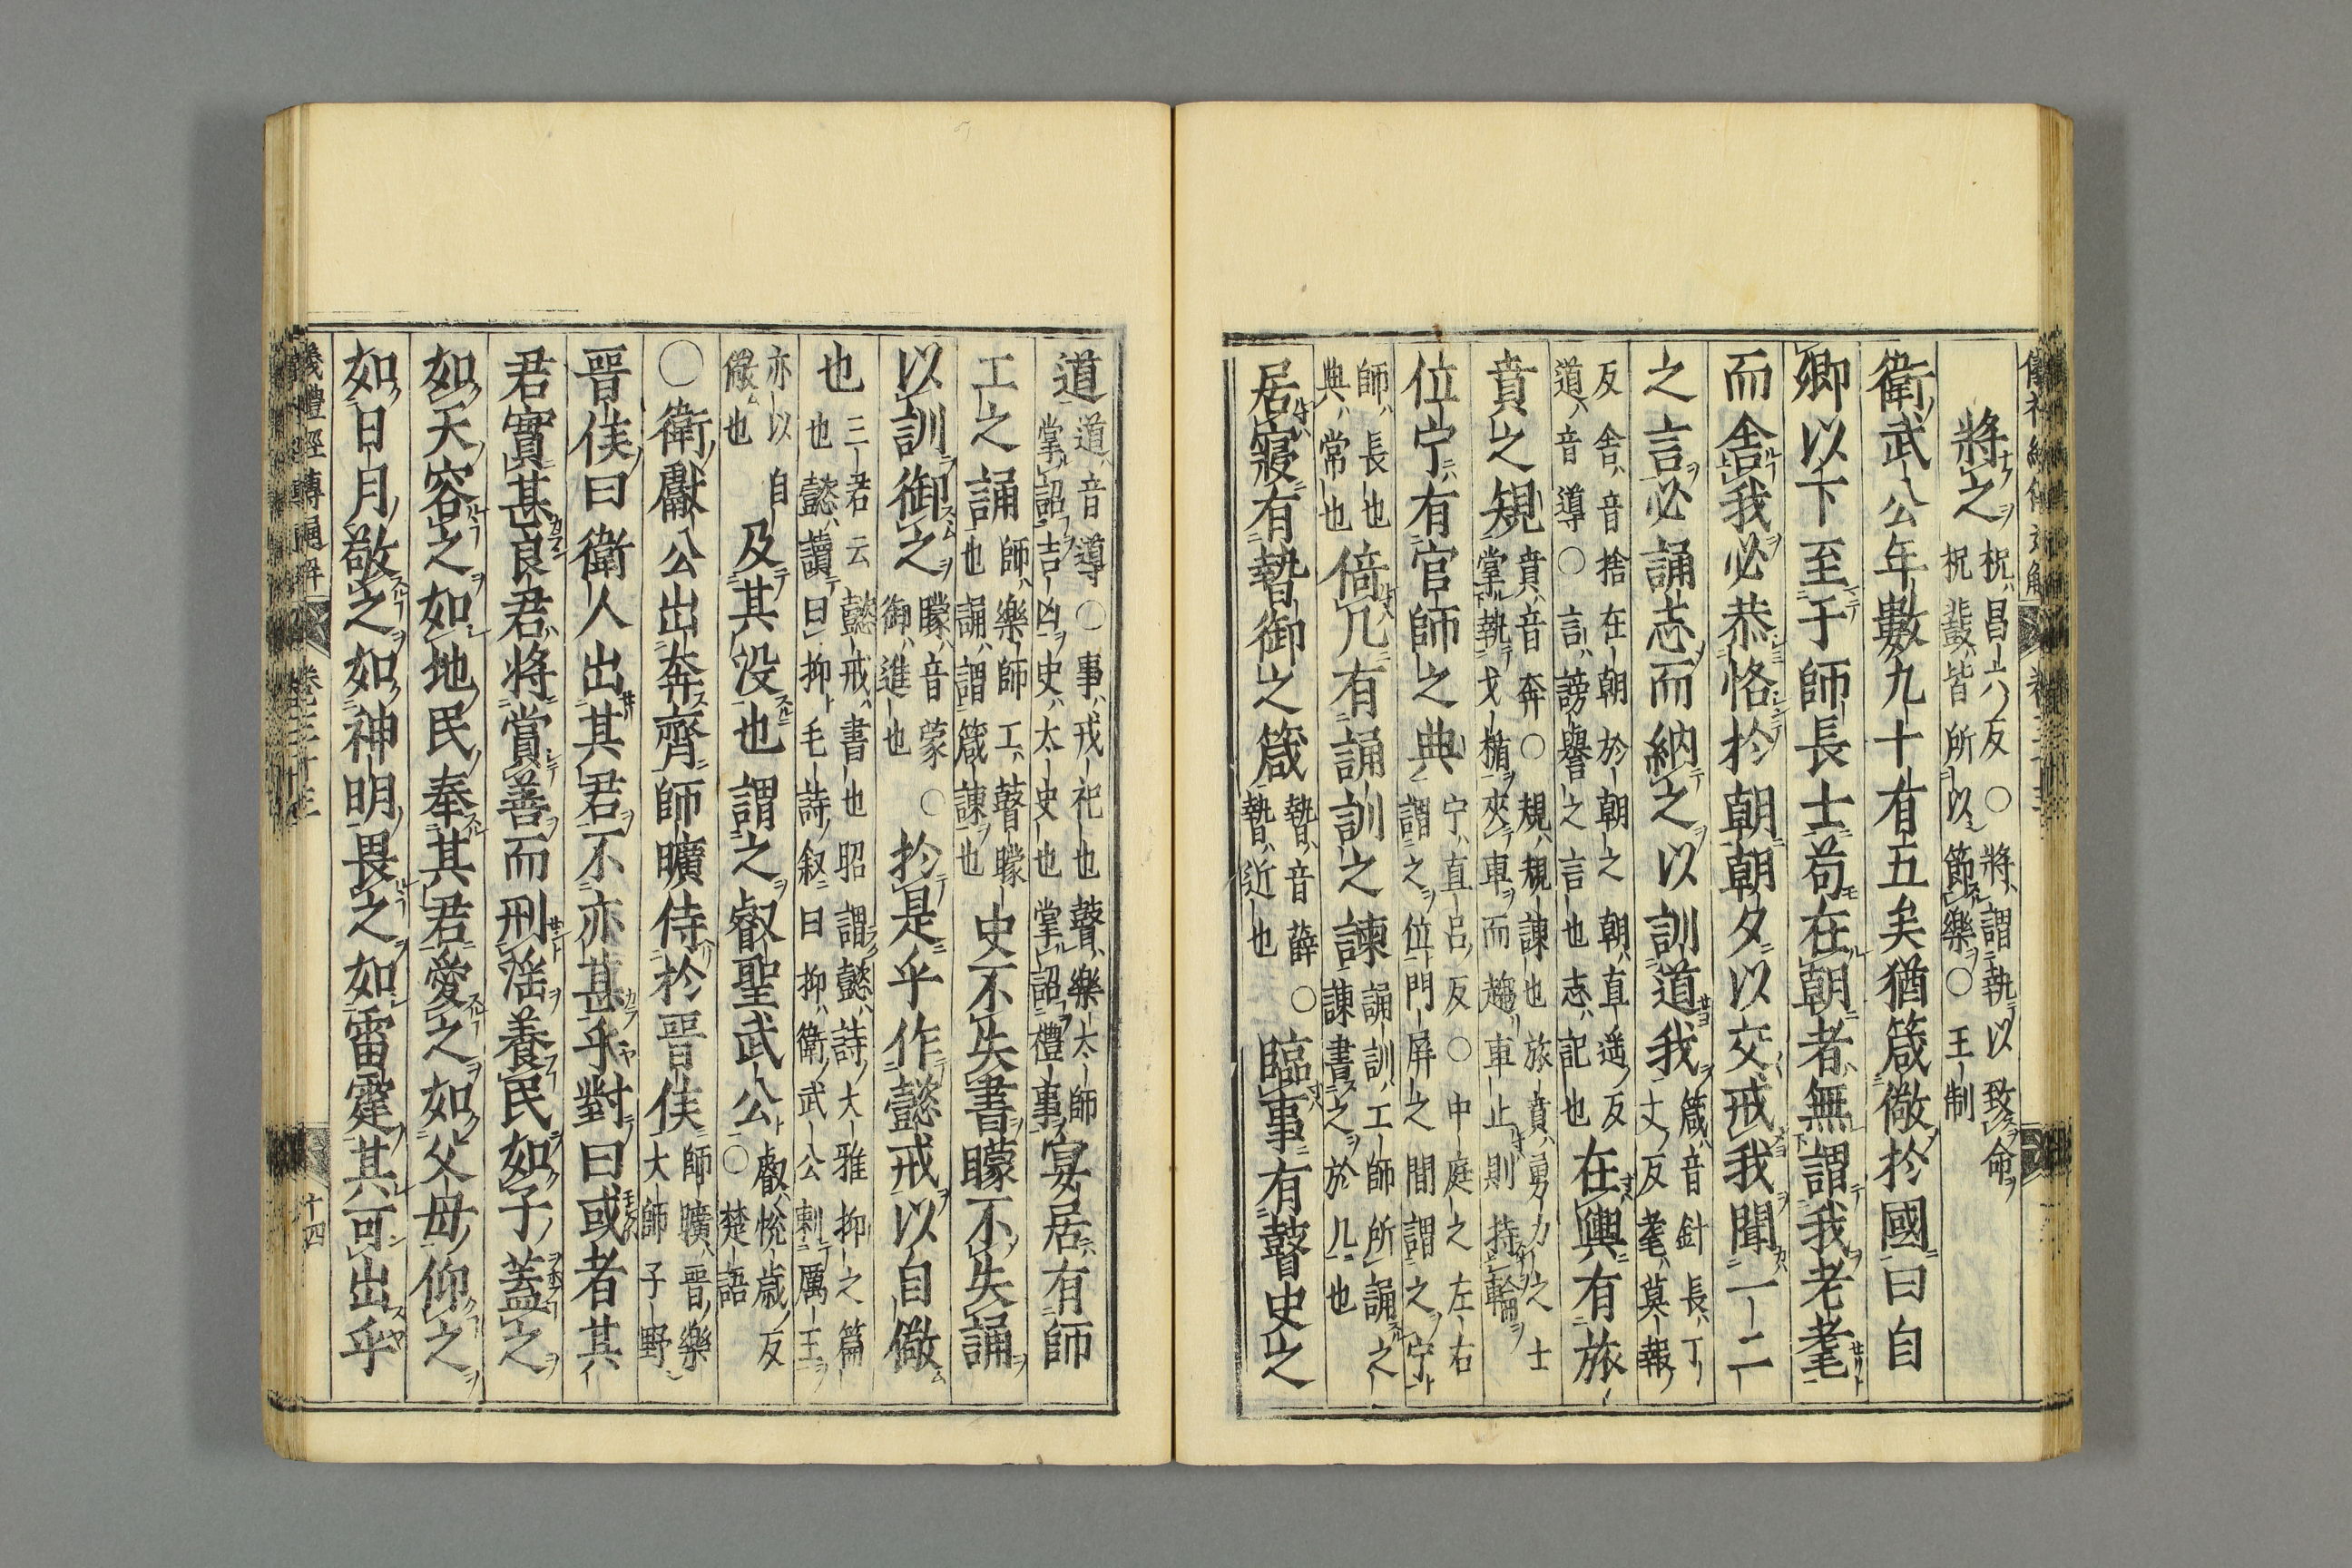 將之 柷昌六反○將謂執以致命
柷鼗皆所以節樂○王制
衛武公年數九十有五矣猶箴儆於國曰自
卿以下至于師長士苟在朝者無謂我老耄
而舍我必恭恪於朝朝夕以交戒我聞一二
之言必誦志而納之以訓道我 箴音針長丁
丈反耄莫報
反舍音捨在朝於朝之朝直遥反
道音導○言謗譽之言也志記也 在輿有旅
賁之規 賁音奔○規規諫也旅賁勇力之士
掌執戈楯夾車而趨車止則持輪
位宁有官師之典 宁直呂反○中庭之左右
謂之位門屏之間謂之宁
師長也
典常也 倚几有誦訓之諫 誦訓工師所誦之
諫書之於几也
居寢有暬御之箴 暬音薛○
暬近也 臨事有瞽史之
道 道音導○事戎祀也瞽樂太師
掌詔吉凶史太史也掌詔禮事 宴居有師
工之誦 師樂師工瞽矇
也誦謂箴諫也 史不失書矇不失誦
以訓御之 矇音蒙○
御進也 於是乎作懿戒以自儆
也 三君云懿戒書也昭謂懿詩大雅抑之篇
也懿讀曰抑毛詩叙曰抑衛武公刺厲王
亦以自
儆也 及其沒也謂之叡聖武公 叡悅歲反
○楚語
○衛獻公出奔齊師曠侍於晉侯 師曠晉樂
大師子野
晉侯曰衛人出其君不亦甚乎對曰或者其
君實甚良君將賞善而刑淫養民如子蓋之
如天容之如地民奉其君愛之如父母仰之
如日月敬之如神明畏之如雷霆其可出乎
儀禮經傳通解 卷三十三 十四